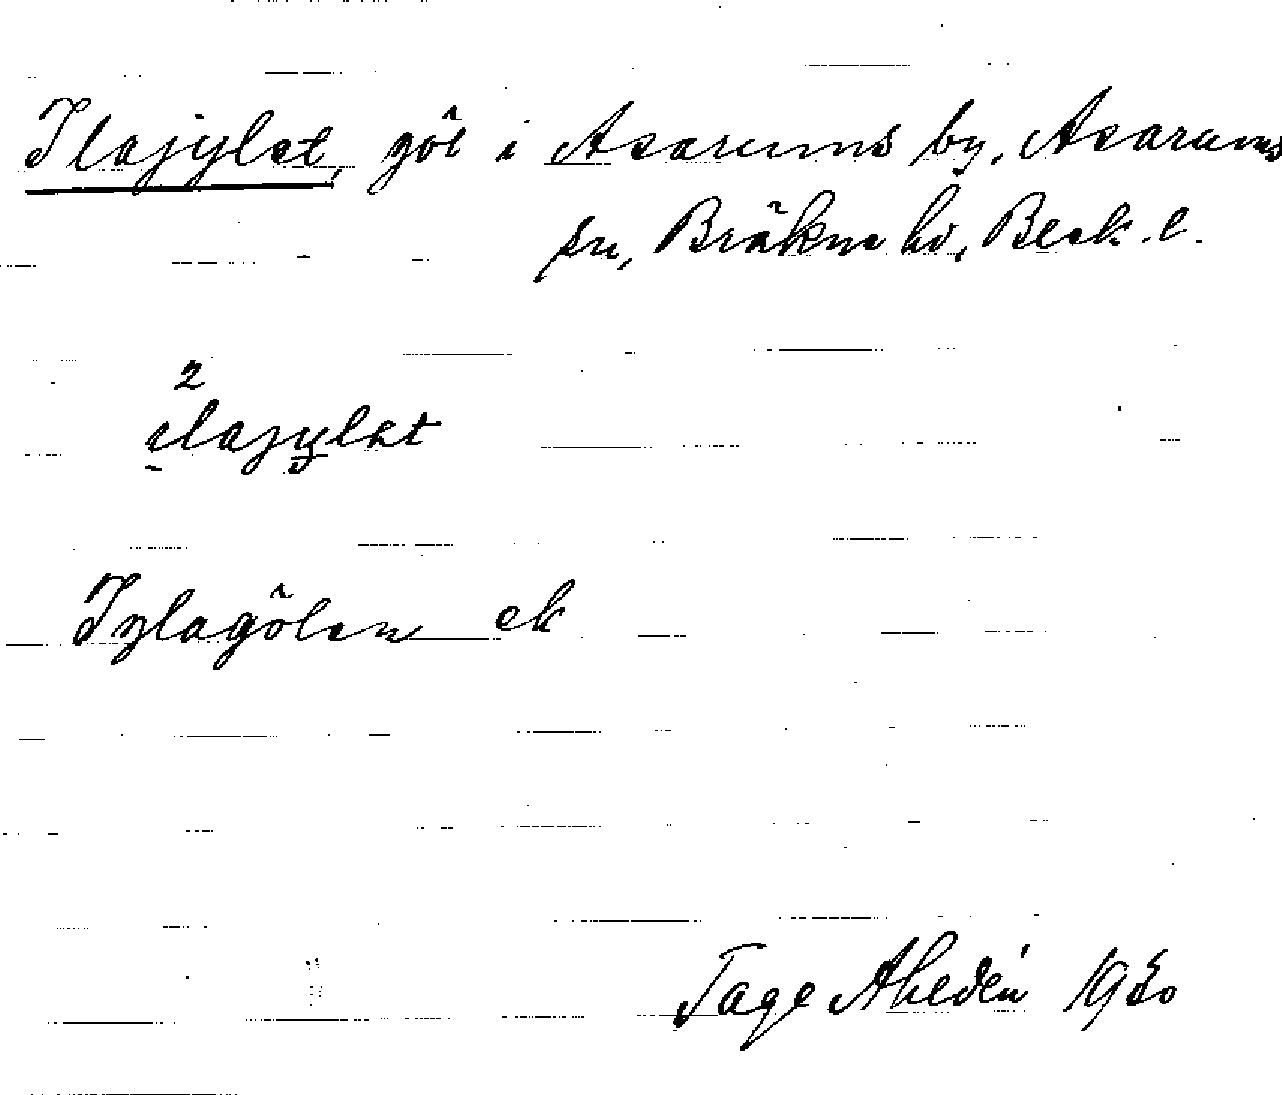 Ilajylet, göl i Asarums by, Asarums
sn, Bräkne hd, Blek. l.
2
ilajylət
Iglagölen ek
Tage Ahldén 1930